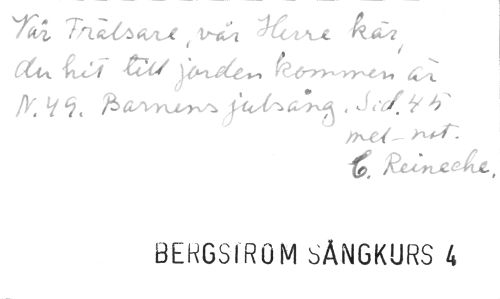 Vår Frälsare, vår Herre kär,
du hit till jorden kommen är
N. 49. Barnens julsång. Sid. 45
mel-not.
C. Reinecke.
BERGSTRÖM SÅNGKURS 4